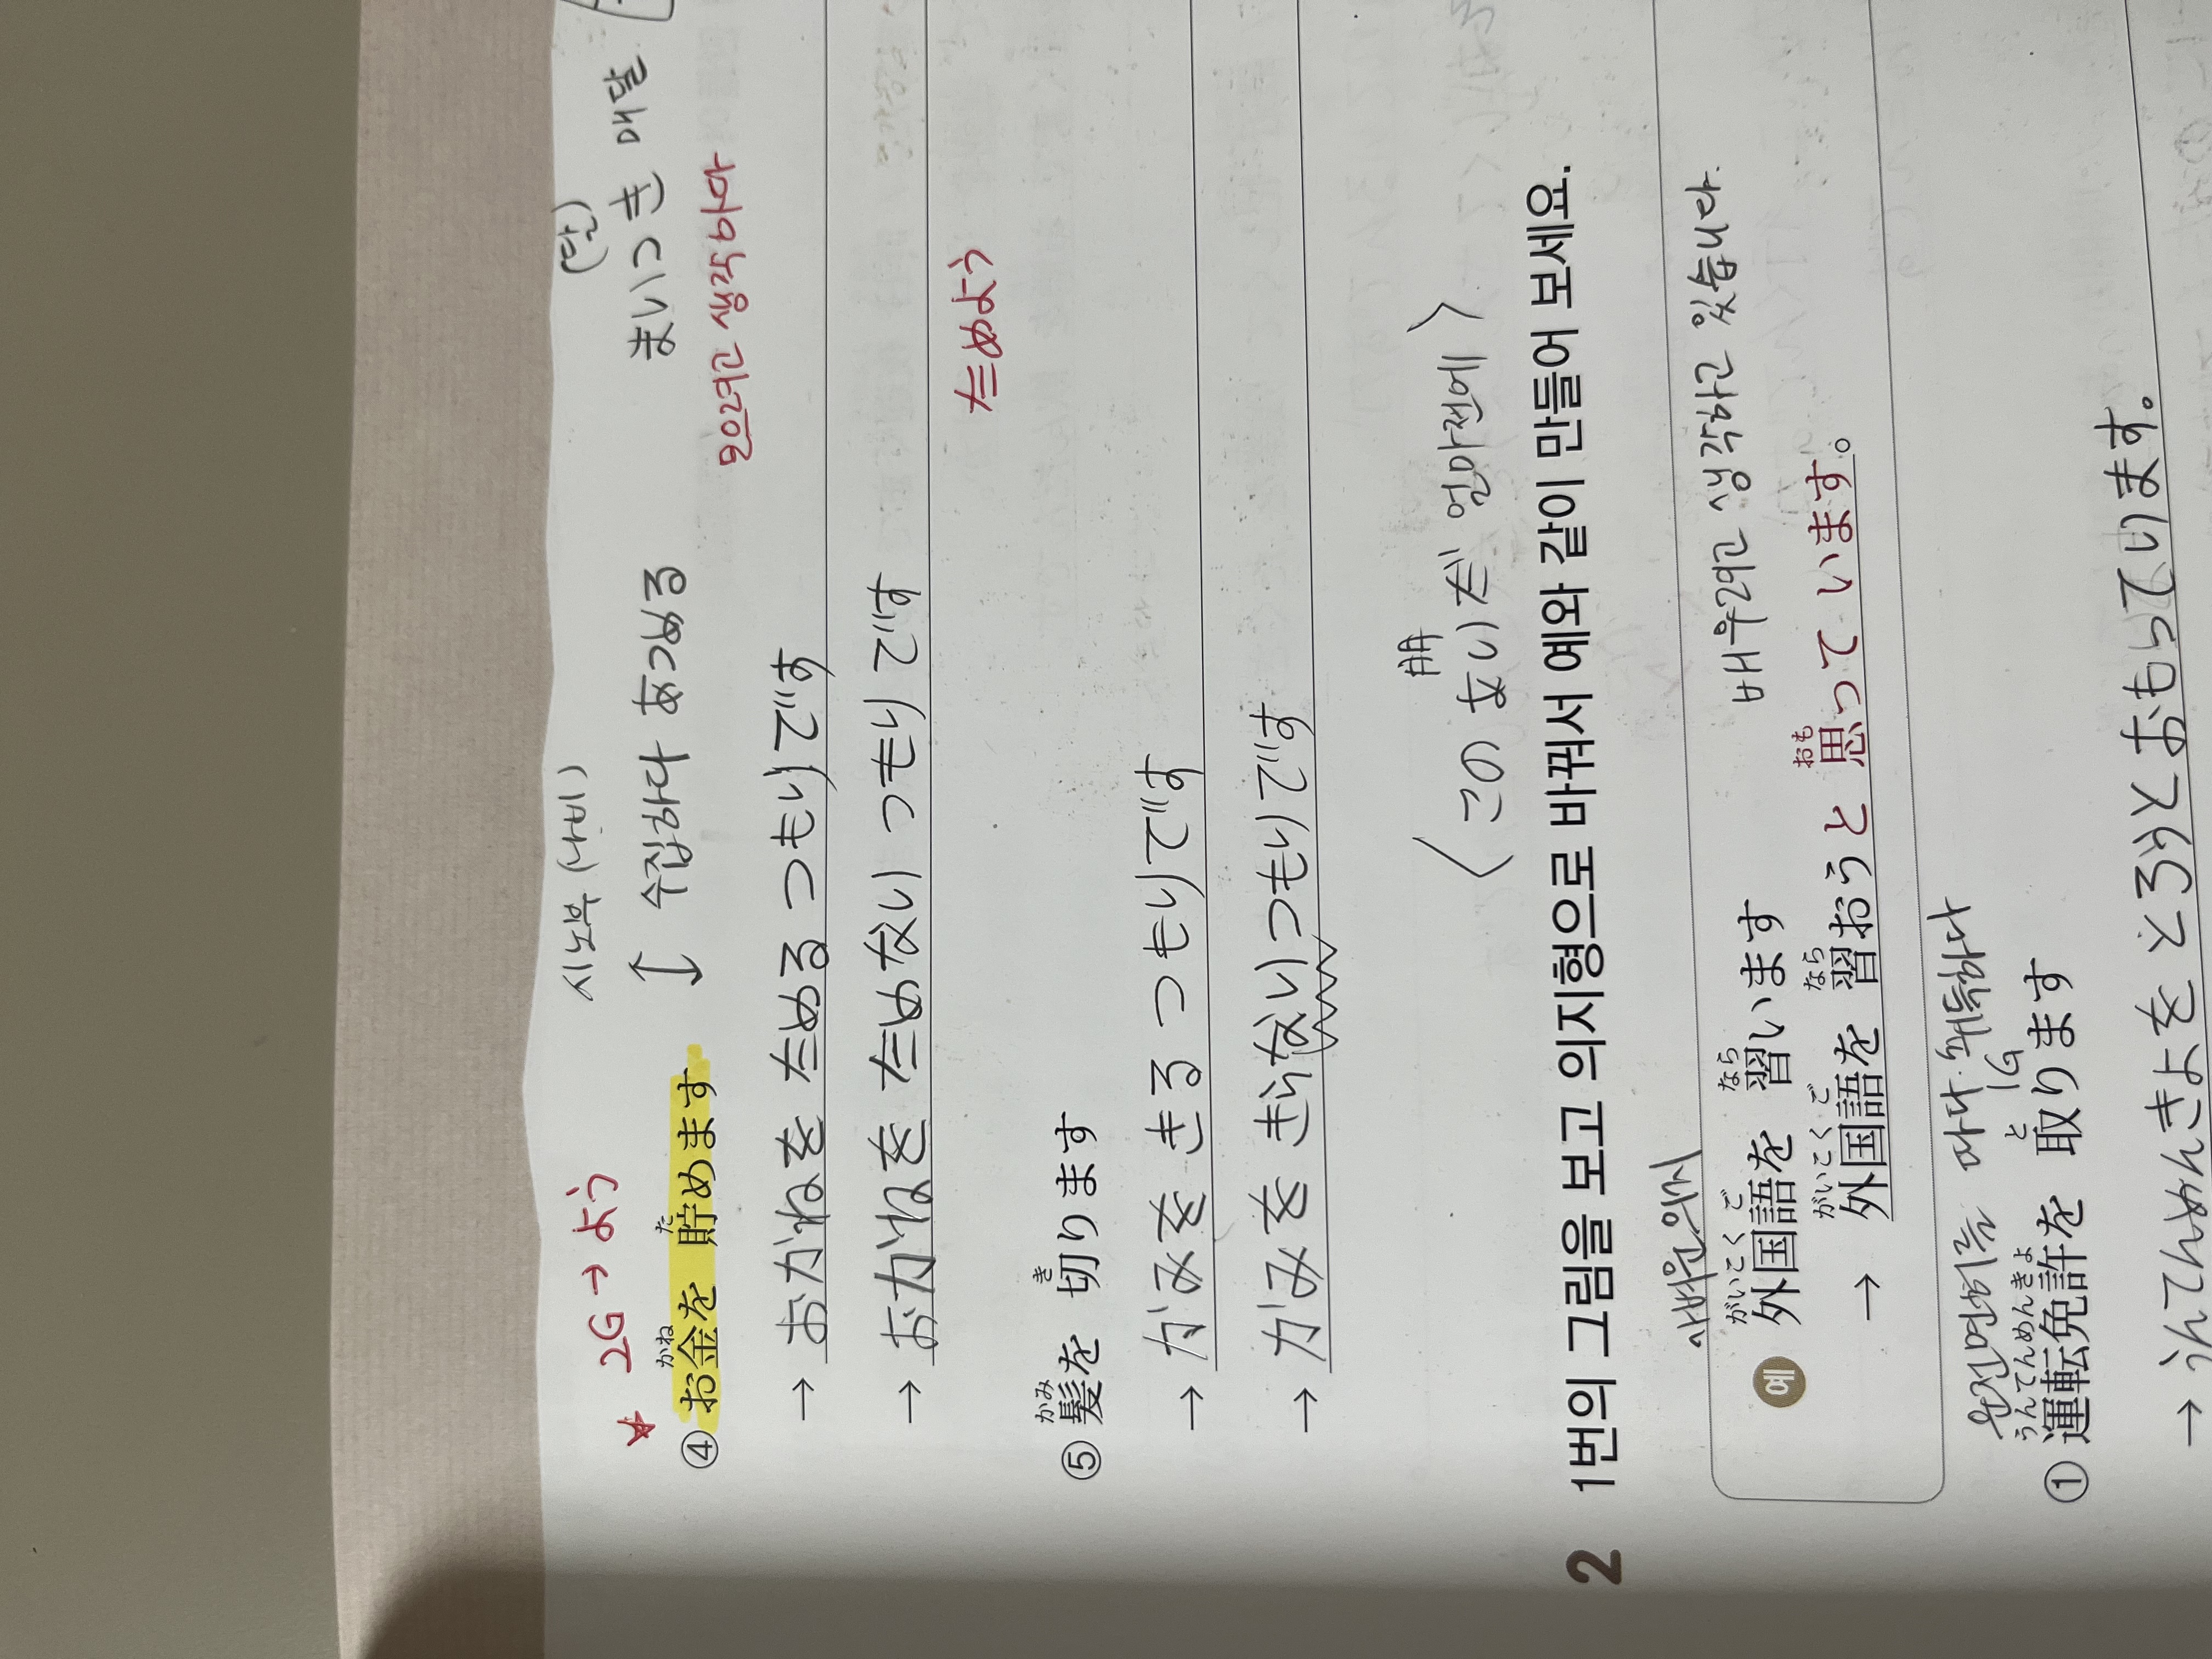 시노부 (나비)
(달)
★ 2G → よう
↕ 수집하다 あつめる
まいつき 매달
かね た
④ お金を 貯めます
모으려고 생각하다
→ おかねを ためる つもりです
→ おがねを ためない つもりです
ためよう
かみ き
⑤ 髪を 切ります
→ かみを きる つもりです
→ かみを きらないつもりです
間
〈 この あいだ 얼마전에 〉
2 1번의 그림을 보고 의지형으로 바꿔서 예와 같이 만들어 보세요.
がいこくご なら
예 外国語を 習います
배우려고 생각하고 있습니다.
がいこくご なら おも
→ 外国語を 習おうと 思って います。
운전면허를 따다 취득하다
うんてんめんきょ と
① 運転免許を 取ります
→ うんてんめんきょを とろうと おもっています。